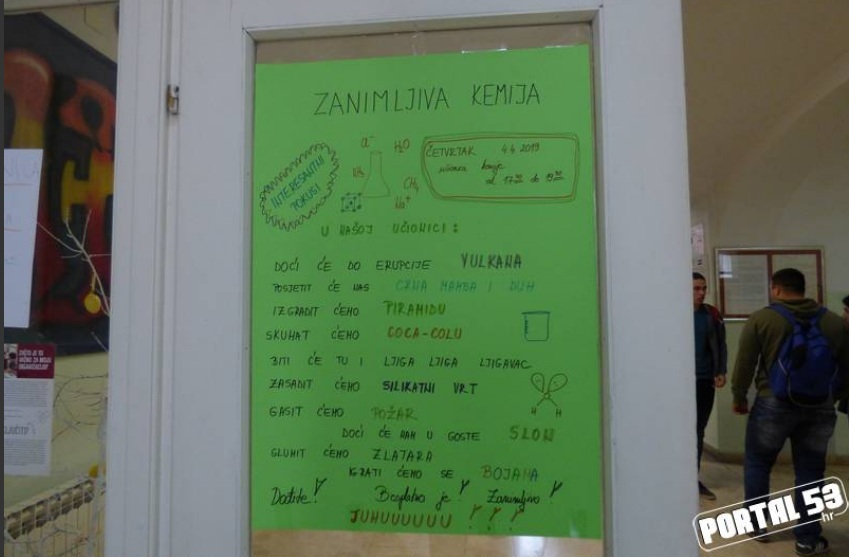 ZANIMLJIVA KEMIJA
INTERESANTNI
POKUSI
Cl⁻
H₂O
NH₃
CH₄
Na⁺
ČETVRTAK 4.4.2019
od 17⁰⁰ do 19⁰⁰
U NAŠOJ UČIONICI :
DOĆI ĆE DO ERUPCIJE VULKANA
POSJETIT ĆE NAS CRNA MAMBA I DUH
IZGRADIT ĆEMO PIRAMIDU
SKUHAT ĆEMO COCA-COLU
BITI ĆE TU I LJIGA LJIGA LJIGAVAC
ZASADIT ĆEMO SILIKATNI VRT
GASIT ĆEMO POŽAR
H H
DOĆI ĆE NAM U GOSTE SLON
GLUMIT ĆEMO ZLATARA
IGRATI ĆEMO SE BOJAMA
Dođite! Besplatno je! Zanimljivo!
JUHUUUUUU !!!
PORTAL 53
hr